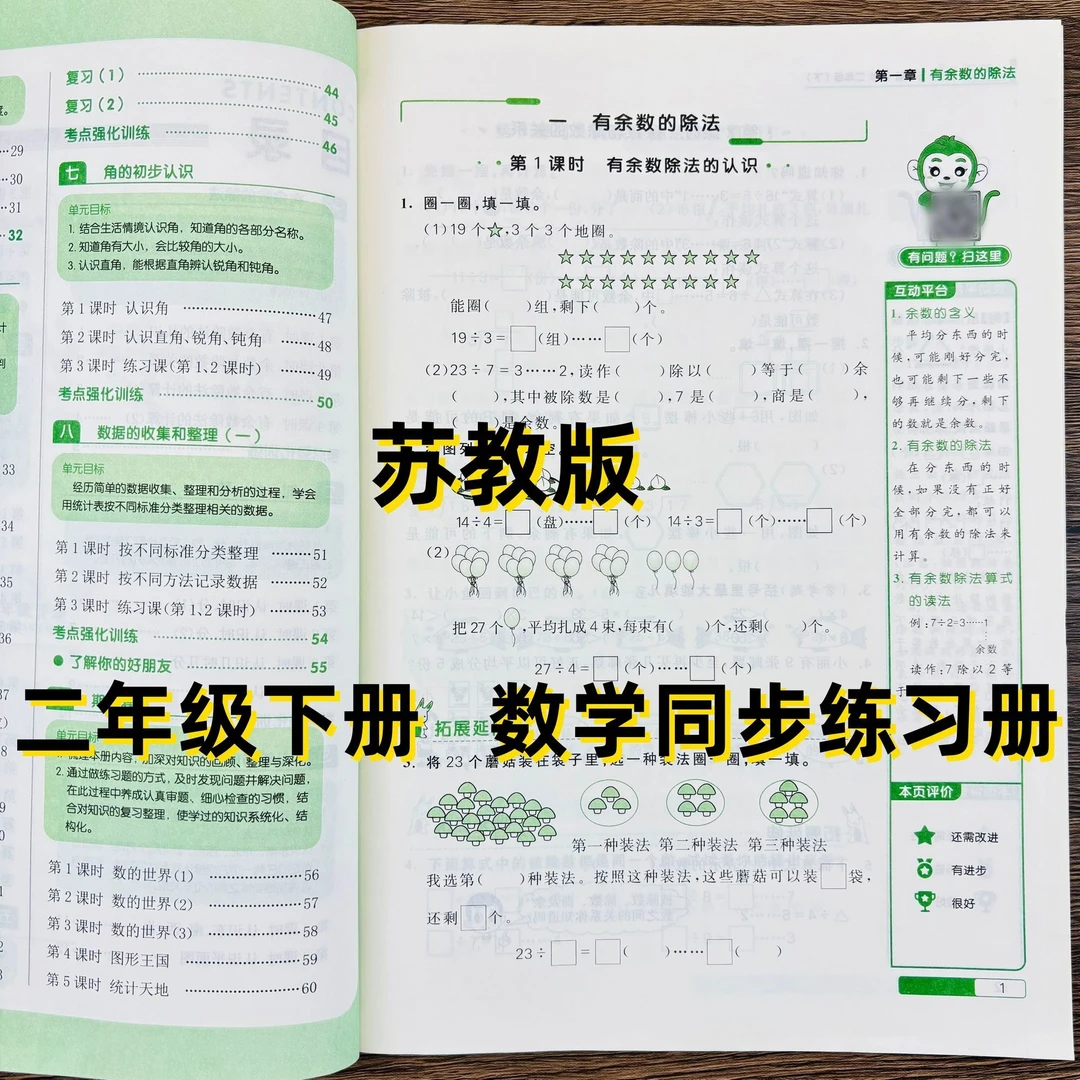 复习(1) 44
复习(2) 45
考点强化训练 46
七 角的初步认识
单元目标
1. 结合生活情境认识角，知道角的各部分名称。
2. 知道角有大小，会比较角的大小。
3. 认识直角，能根据直角辨认锐角和钝角。
第1课时 认识角 47
第2课时 认识直角、锐角、钝角 48
第3课时 练习课(第1、2课时) 49
考点强化训练 50
八 数据的收集和整理(一)
单元目标
经历简单的数据收集、整理和分析的过程，学会
用统计表按不同标准分类整理相关的数据。
第1课时 按不同标准分类整理 51
第2课时 按不同方法记录数据 52
第3课时 练习课(第1、2课时) 53
考点强化训练 54
了解你的好朋友 55
期
单元目标
1. 梳理本册内容，加深对知识的回顾、整理与深化。
2. 通过做练习题的方式，及时发现问题并解决问题，
在此过程中养成认真审题、细心检查的习惯，结
合对知识的复习整理，使学过的知识系统化、结
构化。
第1课时 数的世界(1) 56
第2课时 数的世界(2) 57
第3课时 数的世界(3) 58
第4课时 图形王国 59
第5课时 统计天地 60
29
30
31
32
33
34
35
36
37
第一章 | 有余数的除法
一 有余数的除法
第1课时 有余数除法的认识
1. 圈一圈,填一填。
(1)19个☆,3个3个地圈。
能圈( )组,剩下( )个。
19÷3=□(组)……□(个)
(2)23÷7=3……2,读作( )除以( )等于( )余
( ),其中被除数是( ),7是( ),商是( ),
( )是余数。
14÷4=□(盘)……□(个) 14÷3=□(个)……□(个)
(2)
把27个 ,平均扎成4束,每束有( )个,还剩( )个。
27÷4=□(个)……□(个)
拓展延
3. 将23个蘑菇装在袋子里,选一种装法圈一圈,填一填。
第一种装法 第二种装法 第三种装法
我选第( )种装法。按照这种装法,这些蘑菇可以装□袋,
还剩□个。
23÷□=□( )……□( )
有问题？扫这里
互动平台
1. 余数的含义
平均分东西的时
候,可能刚好分完,
也可能剩下一些不
够再继续分,剩下
的数就是余数。
2. 有余数的除法
在分东西的时
候,如果没有正好
全部分完,都可以
用有余数的除法来
计算。
3. 有余数除法算式
的读法
例:7÷2=3……1
余数
读作:7除以2等
于
本页评价
还需改进
有进步
很好
1
苏教版
二年级下册 数学同步练习册